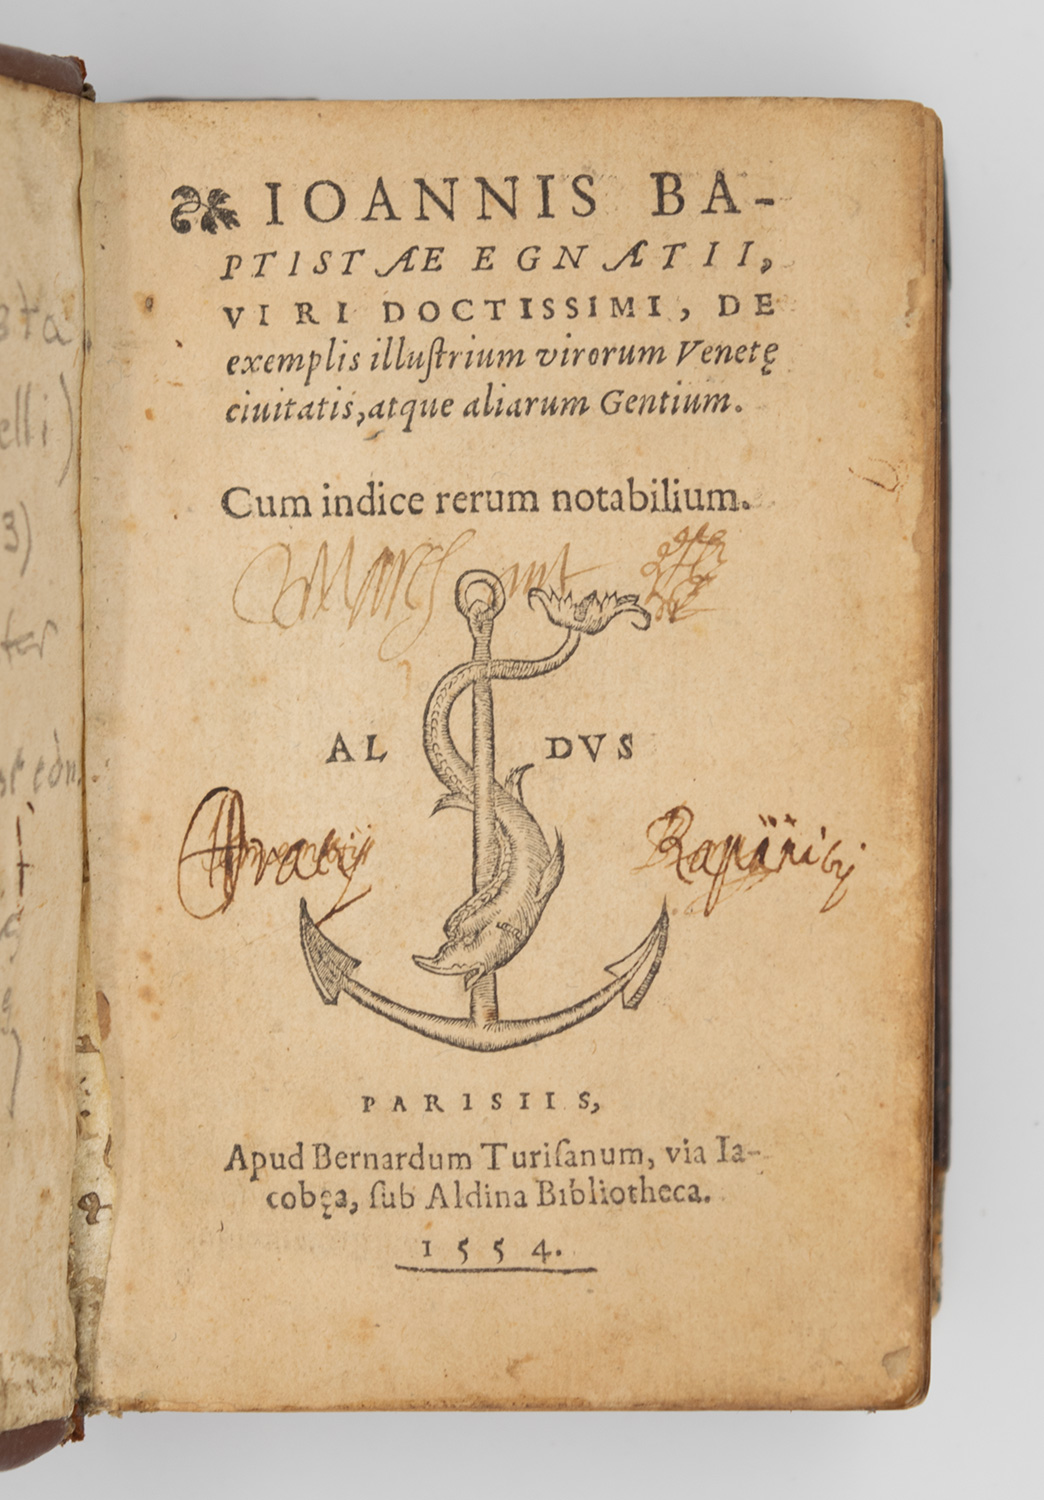 IOANNIS BA-
PTISTÆ EGNATII,
VIRI DOCTISSIMI, DE
exemplis illuſtrium virorum Venetę
ciuitatis, atque aliarum Gentium.
Cum indice rerum notabilium.
AL DVS
PARISIIS,
Apud Bernardum Turiſanum, via Ia-
cobęa, ſub Aldina Bibliotheca.
1554.